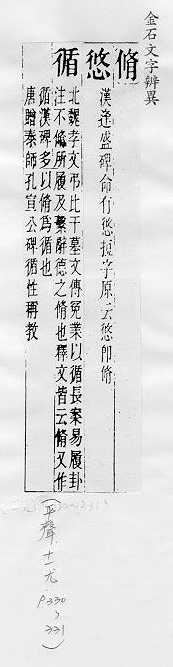 金石文字辨異
脩
悠
漢逢盛碑命有悠短字原云悠即脩
循
北魏孝文弔比干墓文傳冕業以循長案易履卦
注不脩所履及繫辭德之脩也釋文皆云脩又作
循漢碑多以脩爲循也
唐贈泰師孔宣公碑循性稱教
(平聲.十一尤.P330~331)